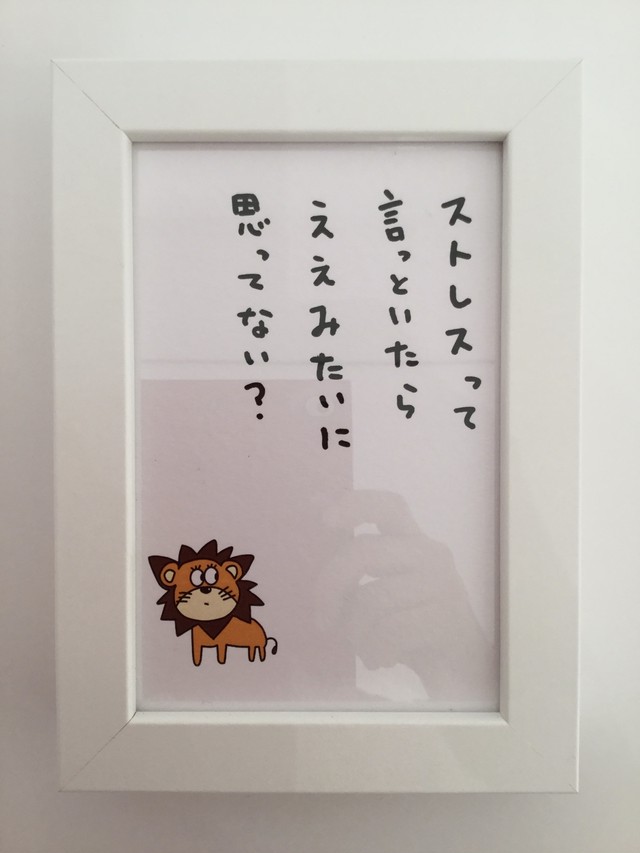 ストレスって
言っといたら
ええみたいに
思ってない？